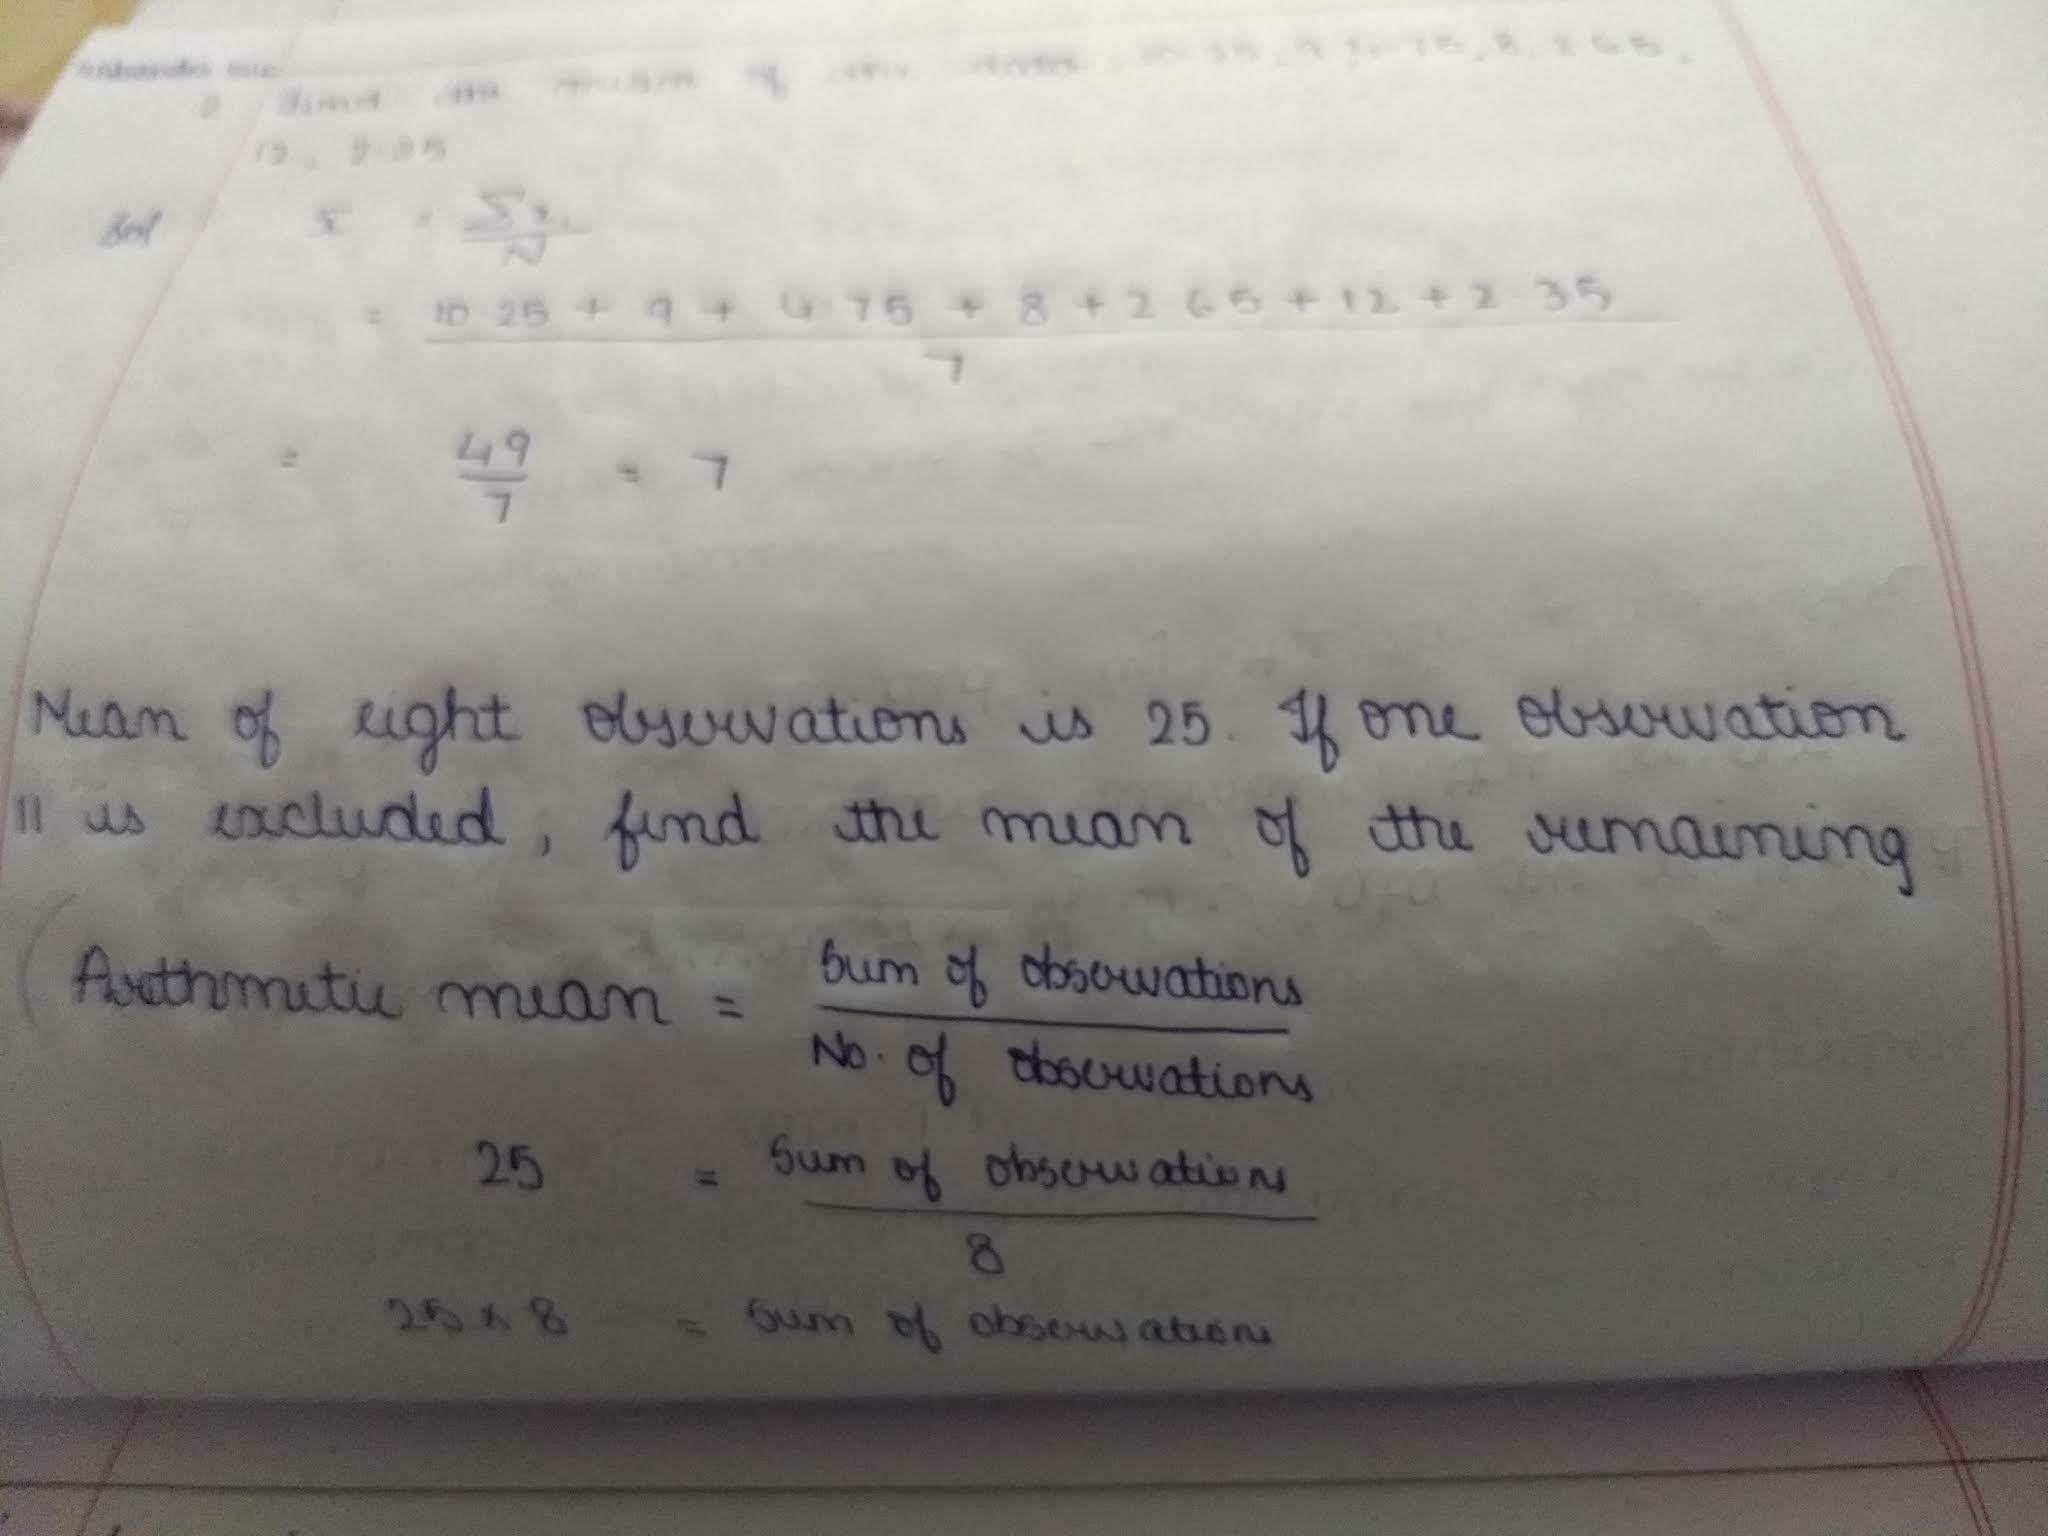 Find the mean of the data, 10.25, 9, 4.75, 8, 2.65,
12, 2.35
Sol x̄ = Σxi / N
= 10.25 + 9 + 4.75 + 8 + 2.65 + 12 + 2.35 / 7
= 49 / 7 = 7
Mean of eight observations is 25. If one observation
11 is excluded, find the mean of the remaining
Arithmetic mean = Sum of observations / No. of observations
25 = Sum of observations / 8
25 × 8 = Sum of observations